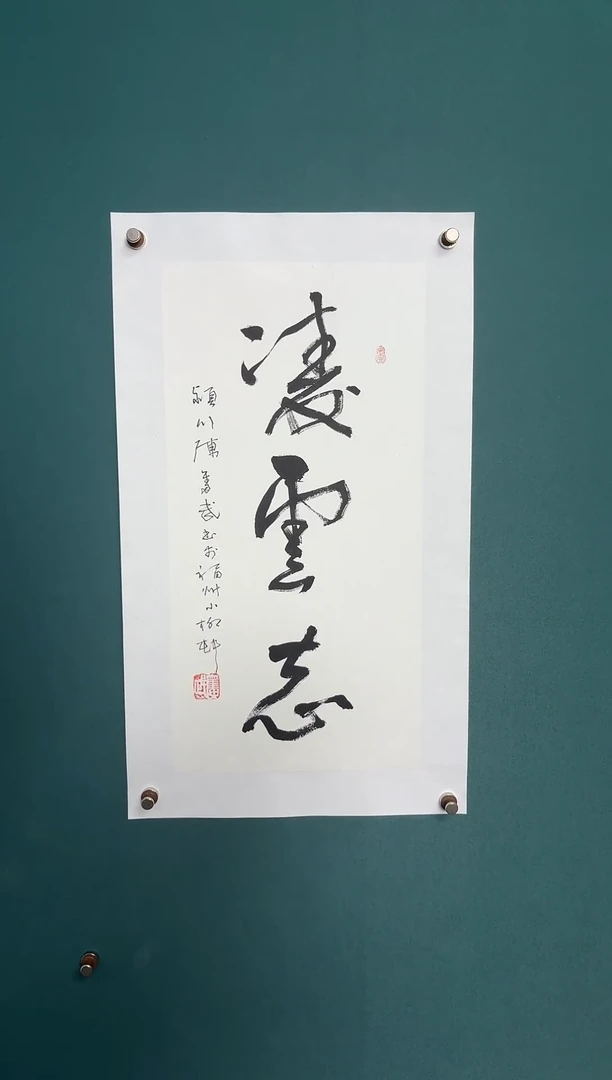 凌雲志
潁川陳善武書於福州小柳村